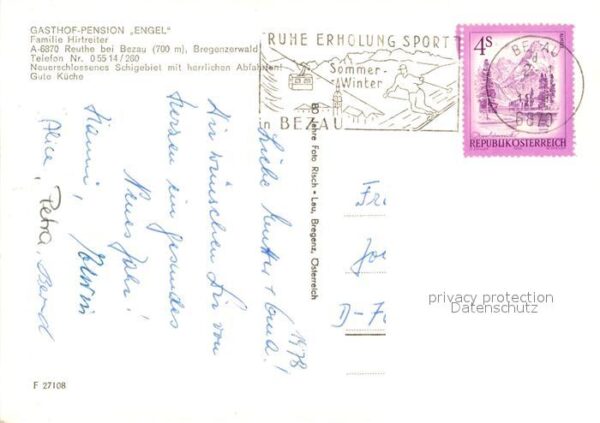 GASTHOF-PENSION „ENGEL"
Familie Hirtreiter
A-6870 Reuthe bei Bezau (700 m), Bregenzerwald
Telefon Nr. 0 55 14 / 260
Neuerschlossenes Schigebiet mit herrlichen Abfahrten!
Gute Küche
RUHE ERHOLUNG SPORT
Sommer-
Winter
BEZAU
BEZAU
6870
4S
REPUBLIK ÖSTERREICH
80 Jahre Foto Risch-Lau, Bregenz, Österreich
1978
Liebe Mutter + Oma!
Wir wünschen Dir von
Herzen ein gesundes
Neues Jahr!
Hanni, Edwin
Alice, Petra, Bernd
D-
privacy protection
Datenschutz
F 27108